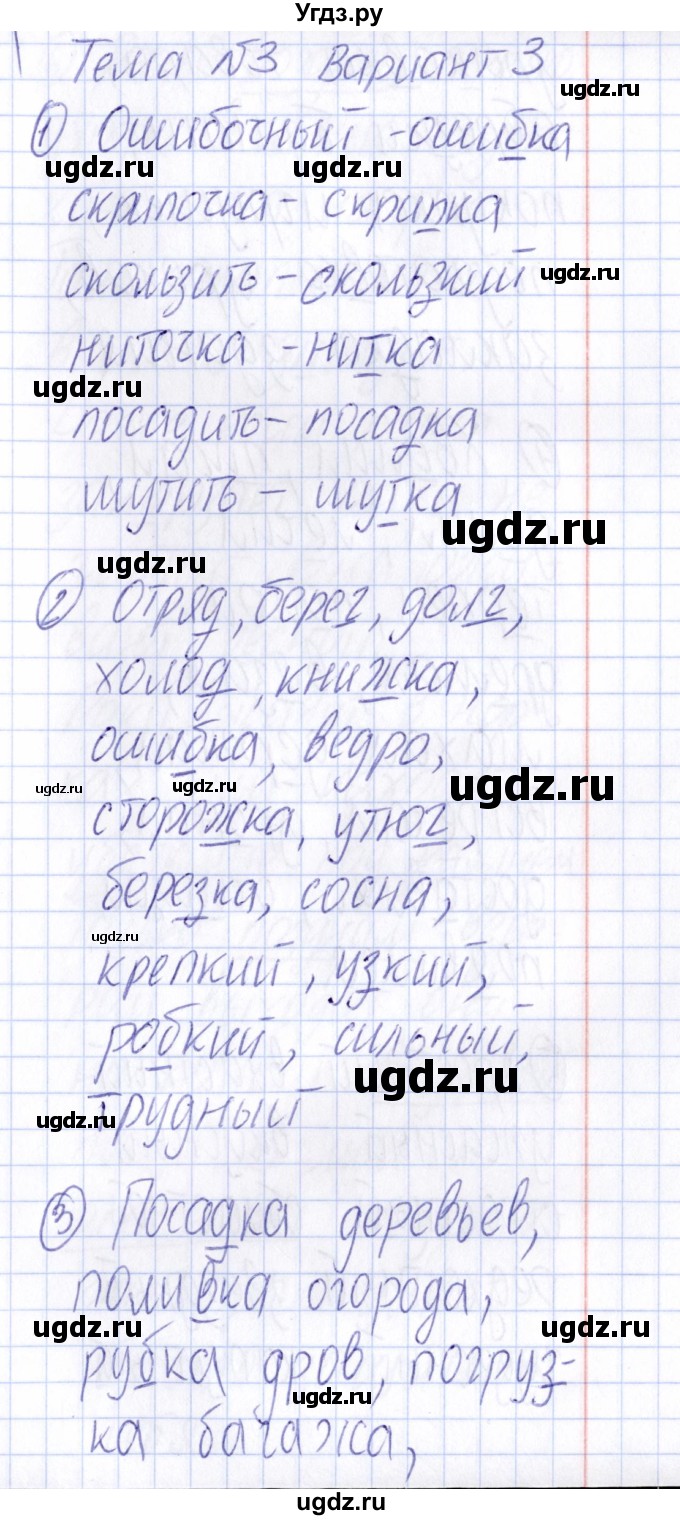 Угдз.ру
Тема №3 Вариант 3
1) Ошибочный - ошибка
ugdz.ru ugdz.ru
скрипочка - скрипка
скользить - скользкий ugdz.ru
ниточка - нитка
ugdz.ru
посадить - посадка
шутить - шутка
ugdz.ru
ugdz.ru
2) Отряд, берег, долг,
холод, книжка,
ошибка, ведро,
ugdz.ru ugdz.ru ugdz.ru
сторожка, утюг,
березка, сосна,
ugdz.ru
крепкий, узкий,
робкий, сильный,
ugdz.ru
ugdz.ru
трудный
3) Посадка деревьев,
поливка огорода,
ugdz.ru ugdz.ru
рубка дров, погруз-
ugdz.ru
ка багажа,
ugdz.ru